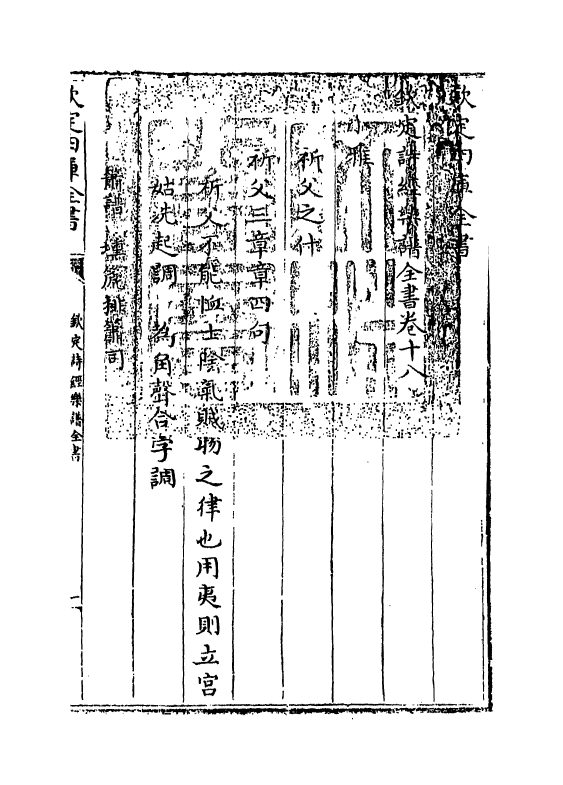 欽定四庫全書
欽定詩經樂譜全書卷十八
小雅
祈父之什
祈父三章章四句
祈父不能恤士陰氣賊物之律也用夷則立宮
姑洗起調 為角聲合字調
簫譜 塤篪排簫同
欽定四庫全書
欽定詩經樂譜全書
一